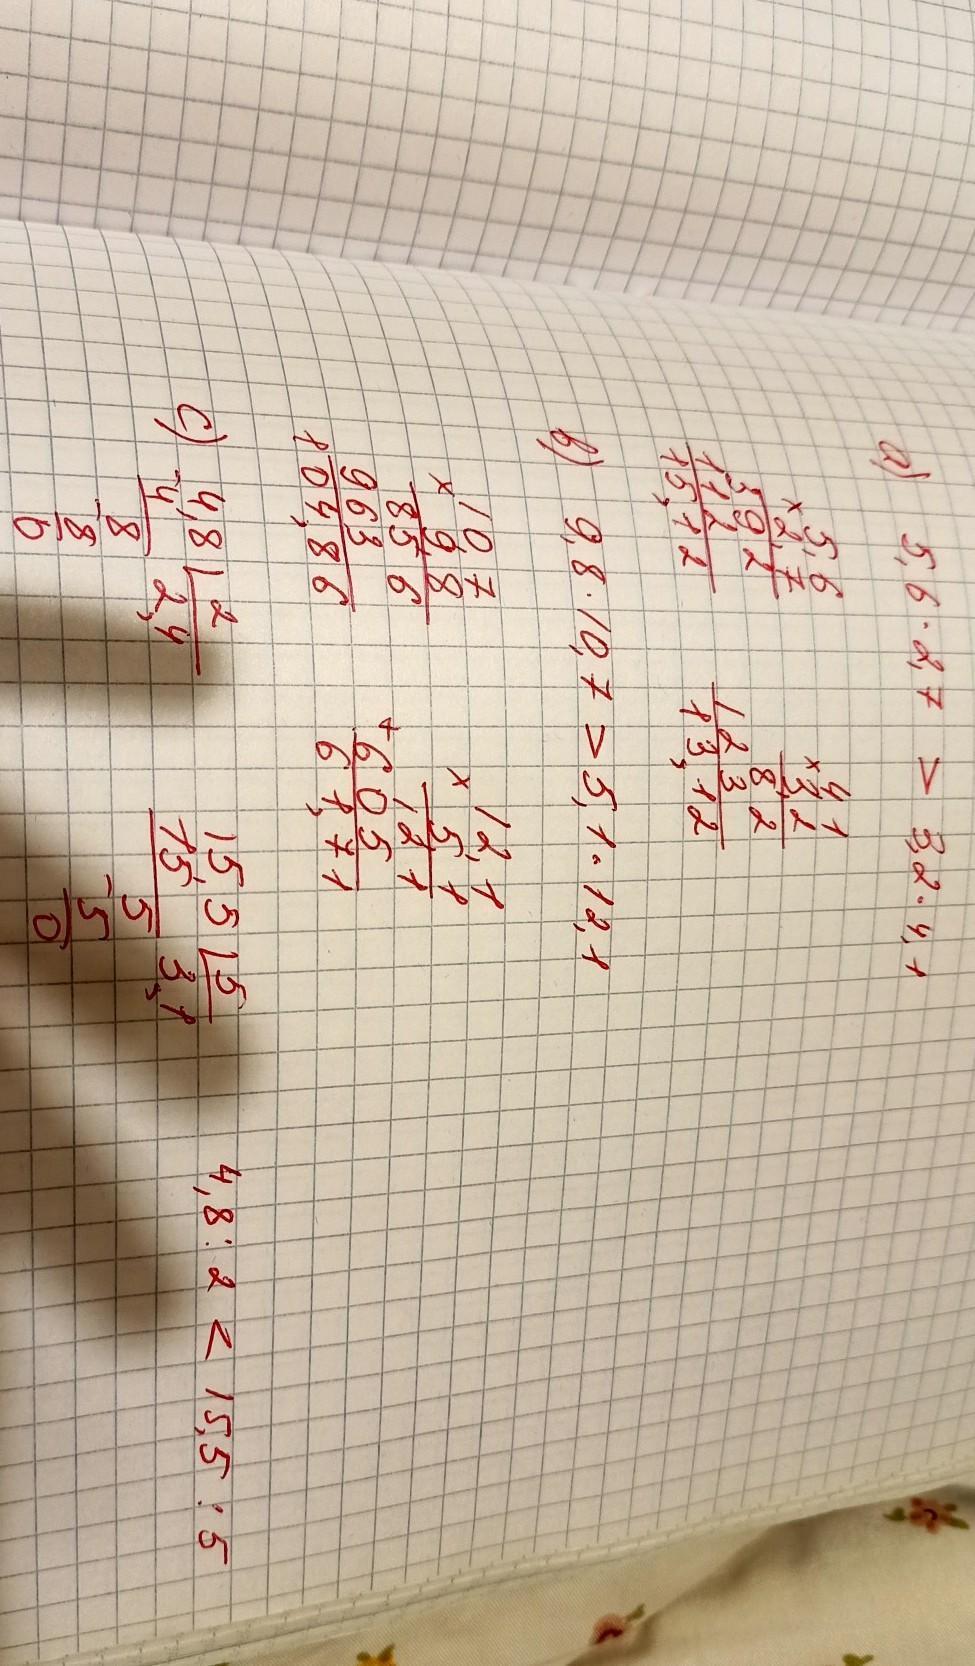 а) 5,6 · 2,7 > 3,2 · 4,1
5,6 4,1
× 2,7 × 3,2
392 82
112 123
15,12 13,12
в) 9,8 · 10,7 > 5,1 · 12,1
10,7 12,1
× 9,8 × 5,1
856 121
963 + 605
104,86 61,71
с) 4,8 | 2 15,5 | 5 4,8 : 2 < 15,5 : 5
-4 2,4 15 3,1
8 5
-8 -5
0 0